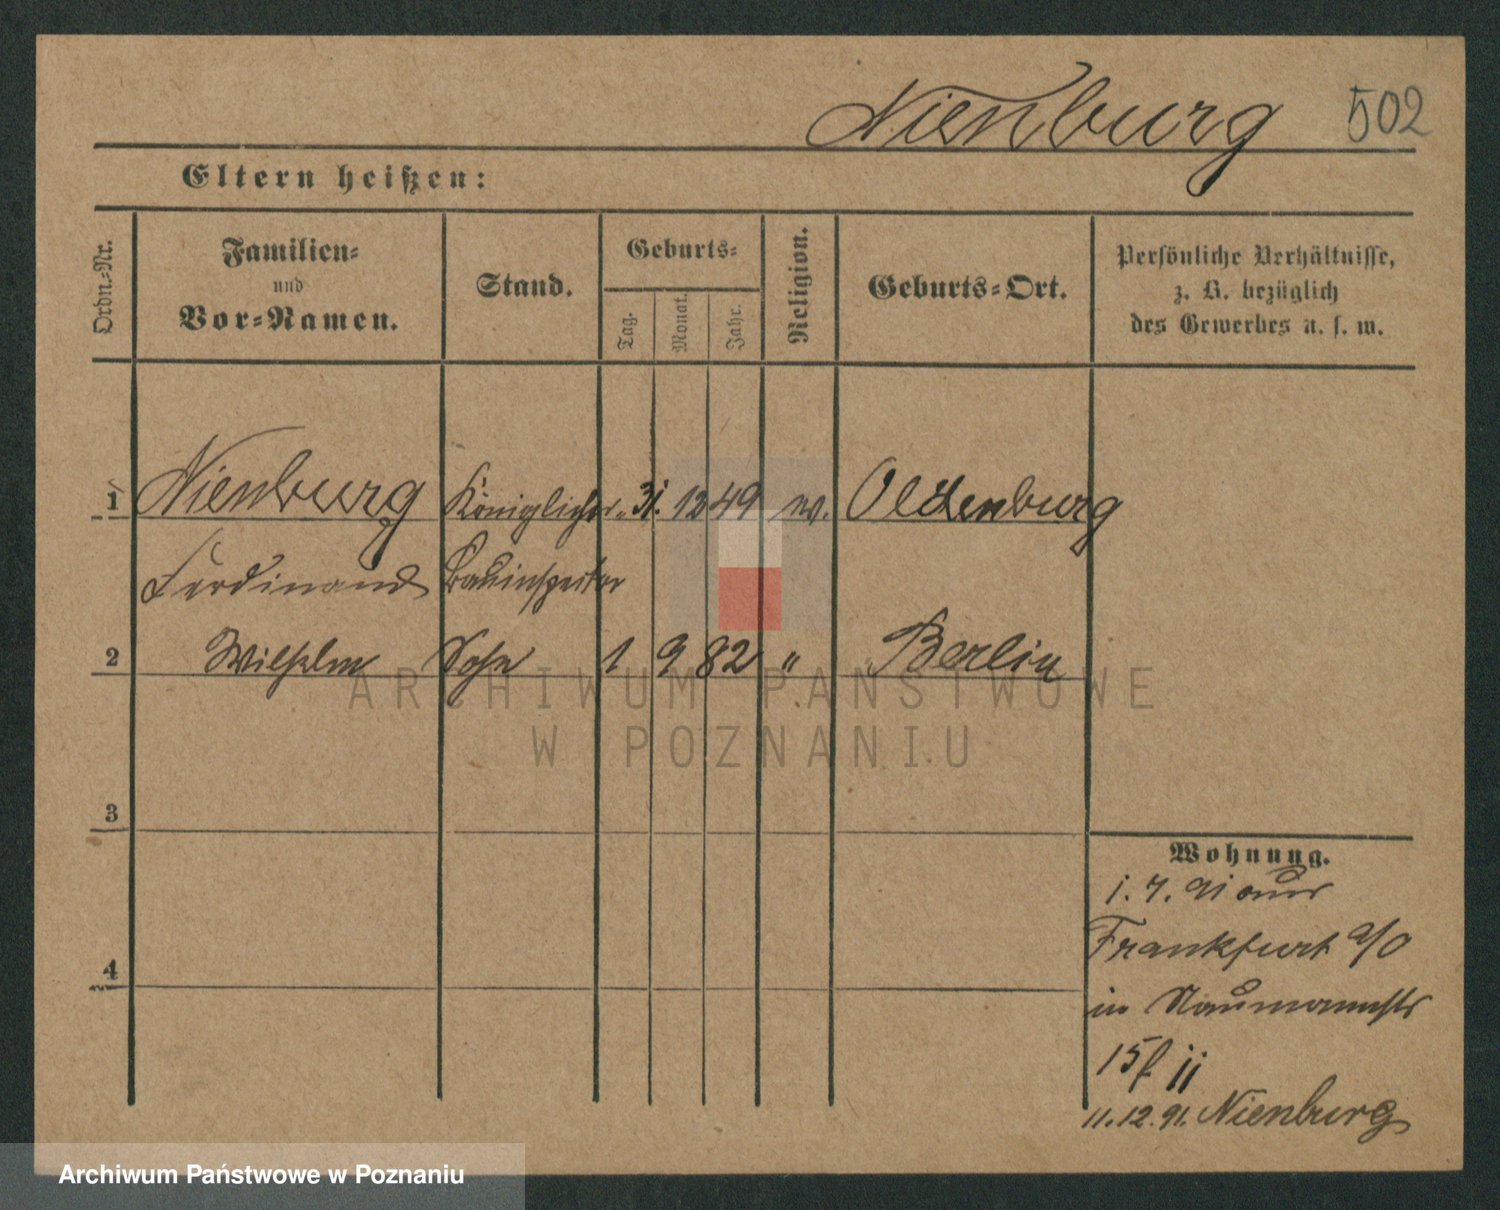 Nienburg 502
Eltern heißen:
Ordn.-Nr.
Familien-
und
Vor-Namen.
Stand.
Geburts-
Tag.
Monat.
Jahr.
Religion.
Geburts-Ort.
Persönliche Verhältnisse,
z. B. bezüglich
des Gewerbes u. s. w.
1 Nienburg Königlicher 31. 12 49 Oldenburg
Ferdinand Bauinspektor
2 Wilhelm Sohn 1 9 82 " Berlin
3
4
Wohnung.
1. 7. 91 aus
Frankfurt a/O
in Naumannstr
15
11.12.91. Nienburg
ARCHIWUM PAŃSTWOWE
W POZNANIU
Archiwum Państwowe w Poznaniu